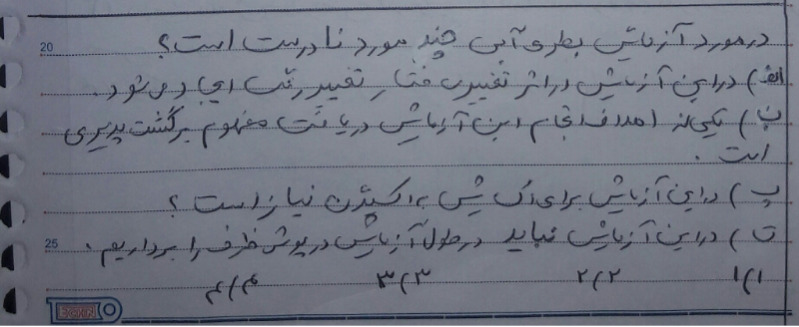 در مورد آزمایش بطری آبی چند مورد نادرست است؟
الف) در این آزمایش در اثر تغییر فشار تغییر رنگ ایجاد می شود.
ب) یکی از اهداف انجام این آزمایش دریافت مفهوم برگشت پذیری
است.
پ) در این آزمایش برای اکسایش به اکسیژن نیاز است؟
ت) در این آزمایش نباید در طول آزمایش درپوش ظرف را برداریم.
۱) ۱ ۲) ۲ ۳) ۳ ۴) ۴
20
25